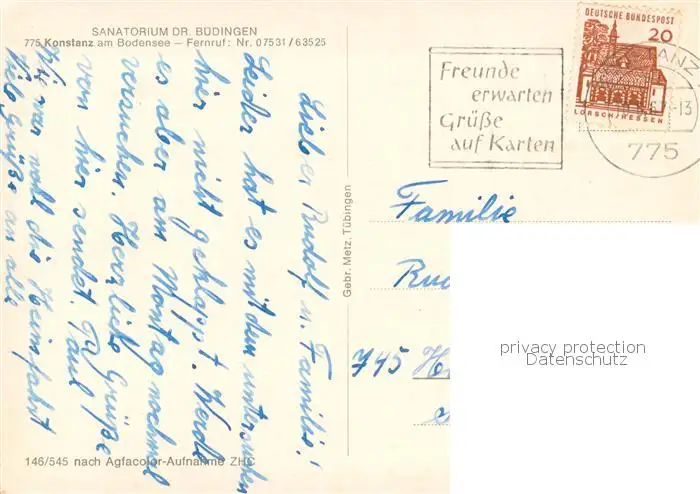 SANATORIUM DR. BÜDINGEN
775 Konstanz am Bodensee — Fernruf: Nr. 07531/63525
Lieber Rudolf u. Familie!
Leider hat es mit dem untersuchen
hier nicht geklappt. Werde
es aber am Montag nochmal
versuchen. Herzliche Grüße
von hier sendet Paul
Wie war wohl die Heimfahrt
viele Grüße an alle
146/545 nach Agfacolor-Aufnahme ZHC
Gebr. Metz, Tübingen
Freunde
erwarten
Grüße
auf Karten
DEUTSCHE BUNDESPOST
20
LORSCH/HESSEN
-13
775
Familie
Rud
745 He
privacy protection
Datenschutz